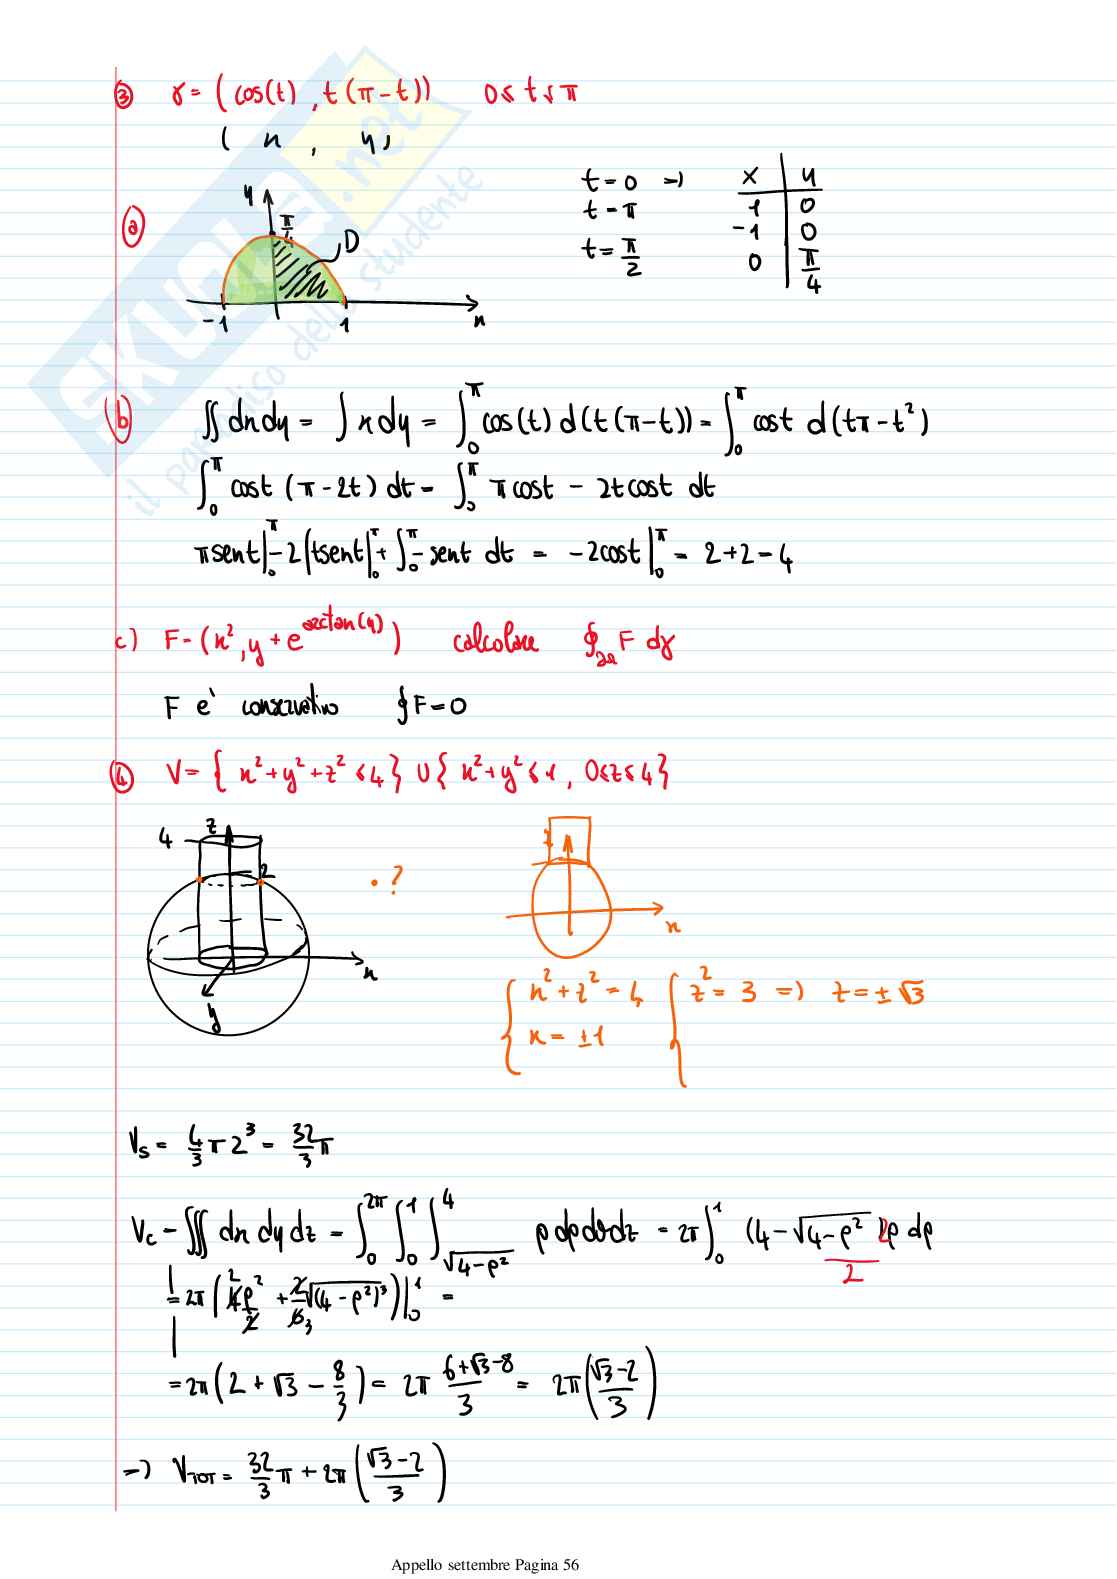 ③ γ = ( cos(t) , t (π - t) ) 0 ≤ t ≤ π
( x , y )
t = 0 => x | y
t = π 1 | 0
-1 | 0
t = π/2 0 | π/4
ⓐ y π/4 D
-1 1 x
ⓑ ∬ dxdy = ∫ x dy = ∫_0^π cos(t) d(t(π-t)) = ∫_0^π cost d(tπ - t²)
∫_0^π cost (π - 2t) dt = ∫_0^π π cost - 2t cost dt
π sent|_0^π - 2(tsent|_0^π + ∫_0^π - sent dt = - 2cost|_0^π = 2 + 2 = 4
c) F = (x², y + e^{arctan(y)}) calcolare ∮_{∂Ω} F dγ
F e' conservativo ∮ F = 0
④ V = { x² + y² + z² ≤ 4 } ∪ { x² + y² ≤ 1 , 0 ≤ z ≤ 4 }
4 z 2 x y
• ?
z x
{ x² + z² = 4 { z² = 3 => z = ± √3
x = ±1
V_S = 4/3 π 2³ = 32/3 π
V_C = ∭ dx dy dz = ∫_0^{2π} ∫_0^1 ∫_{√(4-ρ²)}^4 ρ dρ dθ dz = 2π ∫_0^1 (4 - √(4-ρ²)) 2ρ dρ
2
= 2π ( 4ρ²/2 2 + 2/6 3 √((4-ρ²)³) )|_0^1 =
= 2π ( 2 + √3 - 8/3 ) = 2π (6+√3-8)/3 = 2π ( (√3-2)/3 )
=> V_TOT = 32/3 π + 2π ( (√3-2)/3 )
SKUOLA.net
il paradiso dello studente
Appello settembre Pagina 56